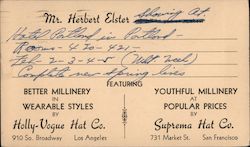 Mr. Herbert Elster Showing At
Hotel Portland in Portland -
Rooms - 420 - 421 -
Feb - 2 - 3 - 4 - 5 (Next Week)
Complete new Spring lines
FEATURING
BETTER MILLINERY YOUTHFUL MILLINERY
IN AT
WEARABLE STYLES POPULAR PRICES
BY BY
Holly-Vogue Hat Co. Suprema Hat Co.
910 So. Broadway Los Angeles 731 Market St. San Francisco